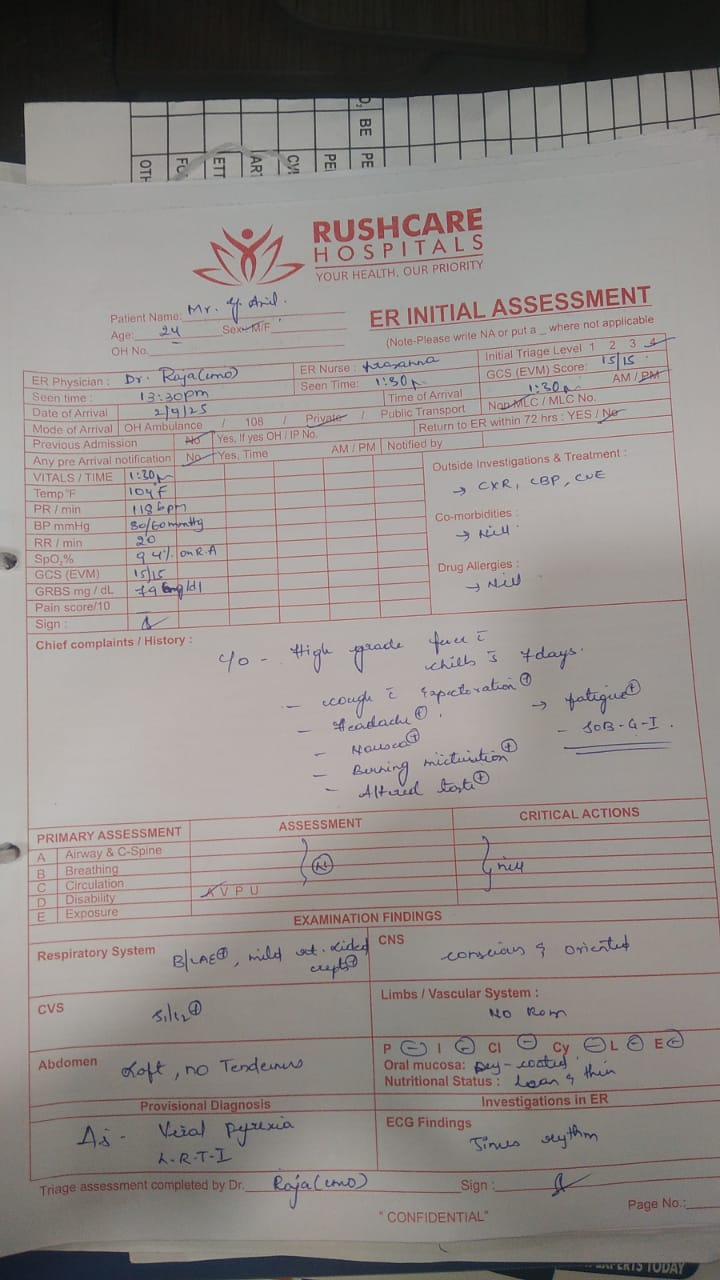 D, BE PE
PE
CVI
AR
ETT
FO
OTH
RUSHCARE
HOSPITALS
YOUR HEALTH, OUR PRIORITY
Patient Name: Mr. Y. Anil.
Age: 24 Sex: M/F
OH No.
ER INITIAL ASSESSMENT
(Note-Please write NA or put a _ where not applicable
ER Physician : Dr. Raja (CMO) ER Nurse : Prasanna Initial Triage Level 1 2 3 4
Seen time : 13:30pm Seen Time: 1:30p GCS (EVM) Score: 15/15
Date of Arrival 2/9/25 Time of Arrival 1:30p AM / PM
Mode of Arrival OH Ambulance / 108 / Private / Public Transport Non MLC / MLC No.
Previous Admission No Yes, If yes OH / IP No. Return to ER within 72 hrs : YES / No
Any pre Arrival notification No Yes, Time AM / PM Notified by
VITALS / TIME 1:30p
Temp°F 104 F
PR / min 118 bpm
BP mmHg 80/60mmHg
RR / min 20
SpO2% 94% on R.A
GCS (EVM) 15/15
GRBS mg / dL mg/dl
Pain score/10
Sign :
Outside Investigations & Treatment :
→ CXR, CBP, CUE
Co-morbidities :
→ Nill
Drug Allergies :
→ Nill
Chief complaints / History :
c/o - High grade fever c̄
chills s̄ 7days.
- cough c̄ Expectoration ⊕
- Headache ⊕ . → fatigue ⊕
- Nausea ⊕ - SOB-G-I .
- Burning micturition ⊕
- Altered taste ⊕
PRIMARY ASSESSMENT ASSESSMENT CRITICAL ACTIONS
A Airway & C-Spine
B Breathing nill
C Circulation
D Disability A V P U
E Exposure
EXAMINATION FINDINGS
Respiratory System B/LAE ⊕, mild sided
crepts ⊕
CNS conscious & oriented
CVS S1/S2 ⊕
Limbs / Vascular System :
NO Rom
Abdomen Soft, no Tenderness
P ⊖ I ⊖ Cl ⊖ Cy ⊖ L ⊖ E ⊖
Oral mucosa: Dry-coated
Nutritional Status : Lean & thin
Provisional Diagnosis
As - Viral pyrexia
L-R-T-I
Investigations in ER
ECG Findings
Sinus rythm
Triage assessment completed by Dr. Raja (CMO) Sign :
Page No.:
"CONFIDENTIAL"
EXPERTS TODAY